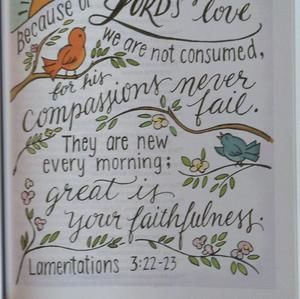 Because of
LORD'S love
we are not consumed,
for his
compassions never
fail.
They are new
every morning;
great is
your faithfulness.
Lamentations 3:22-23